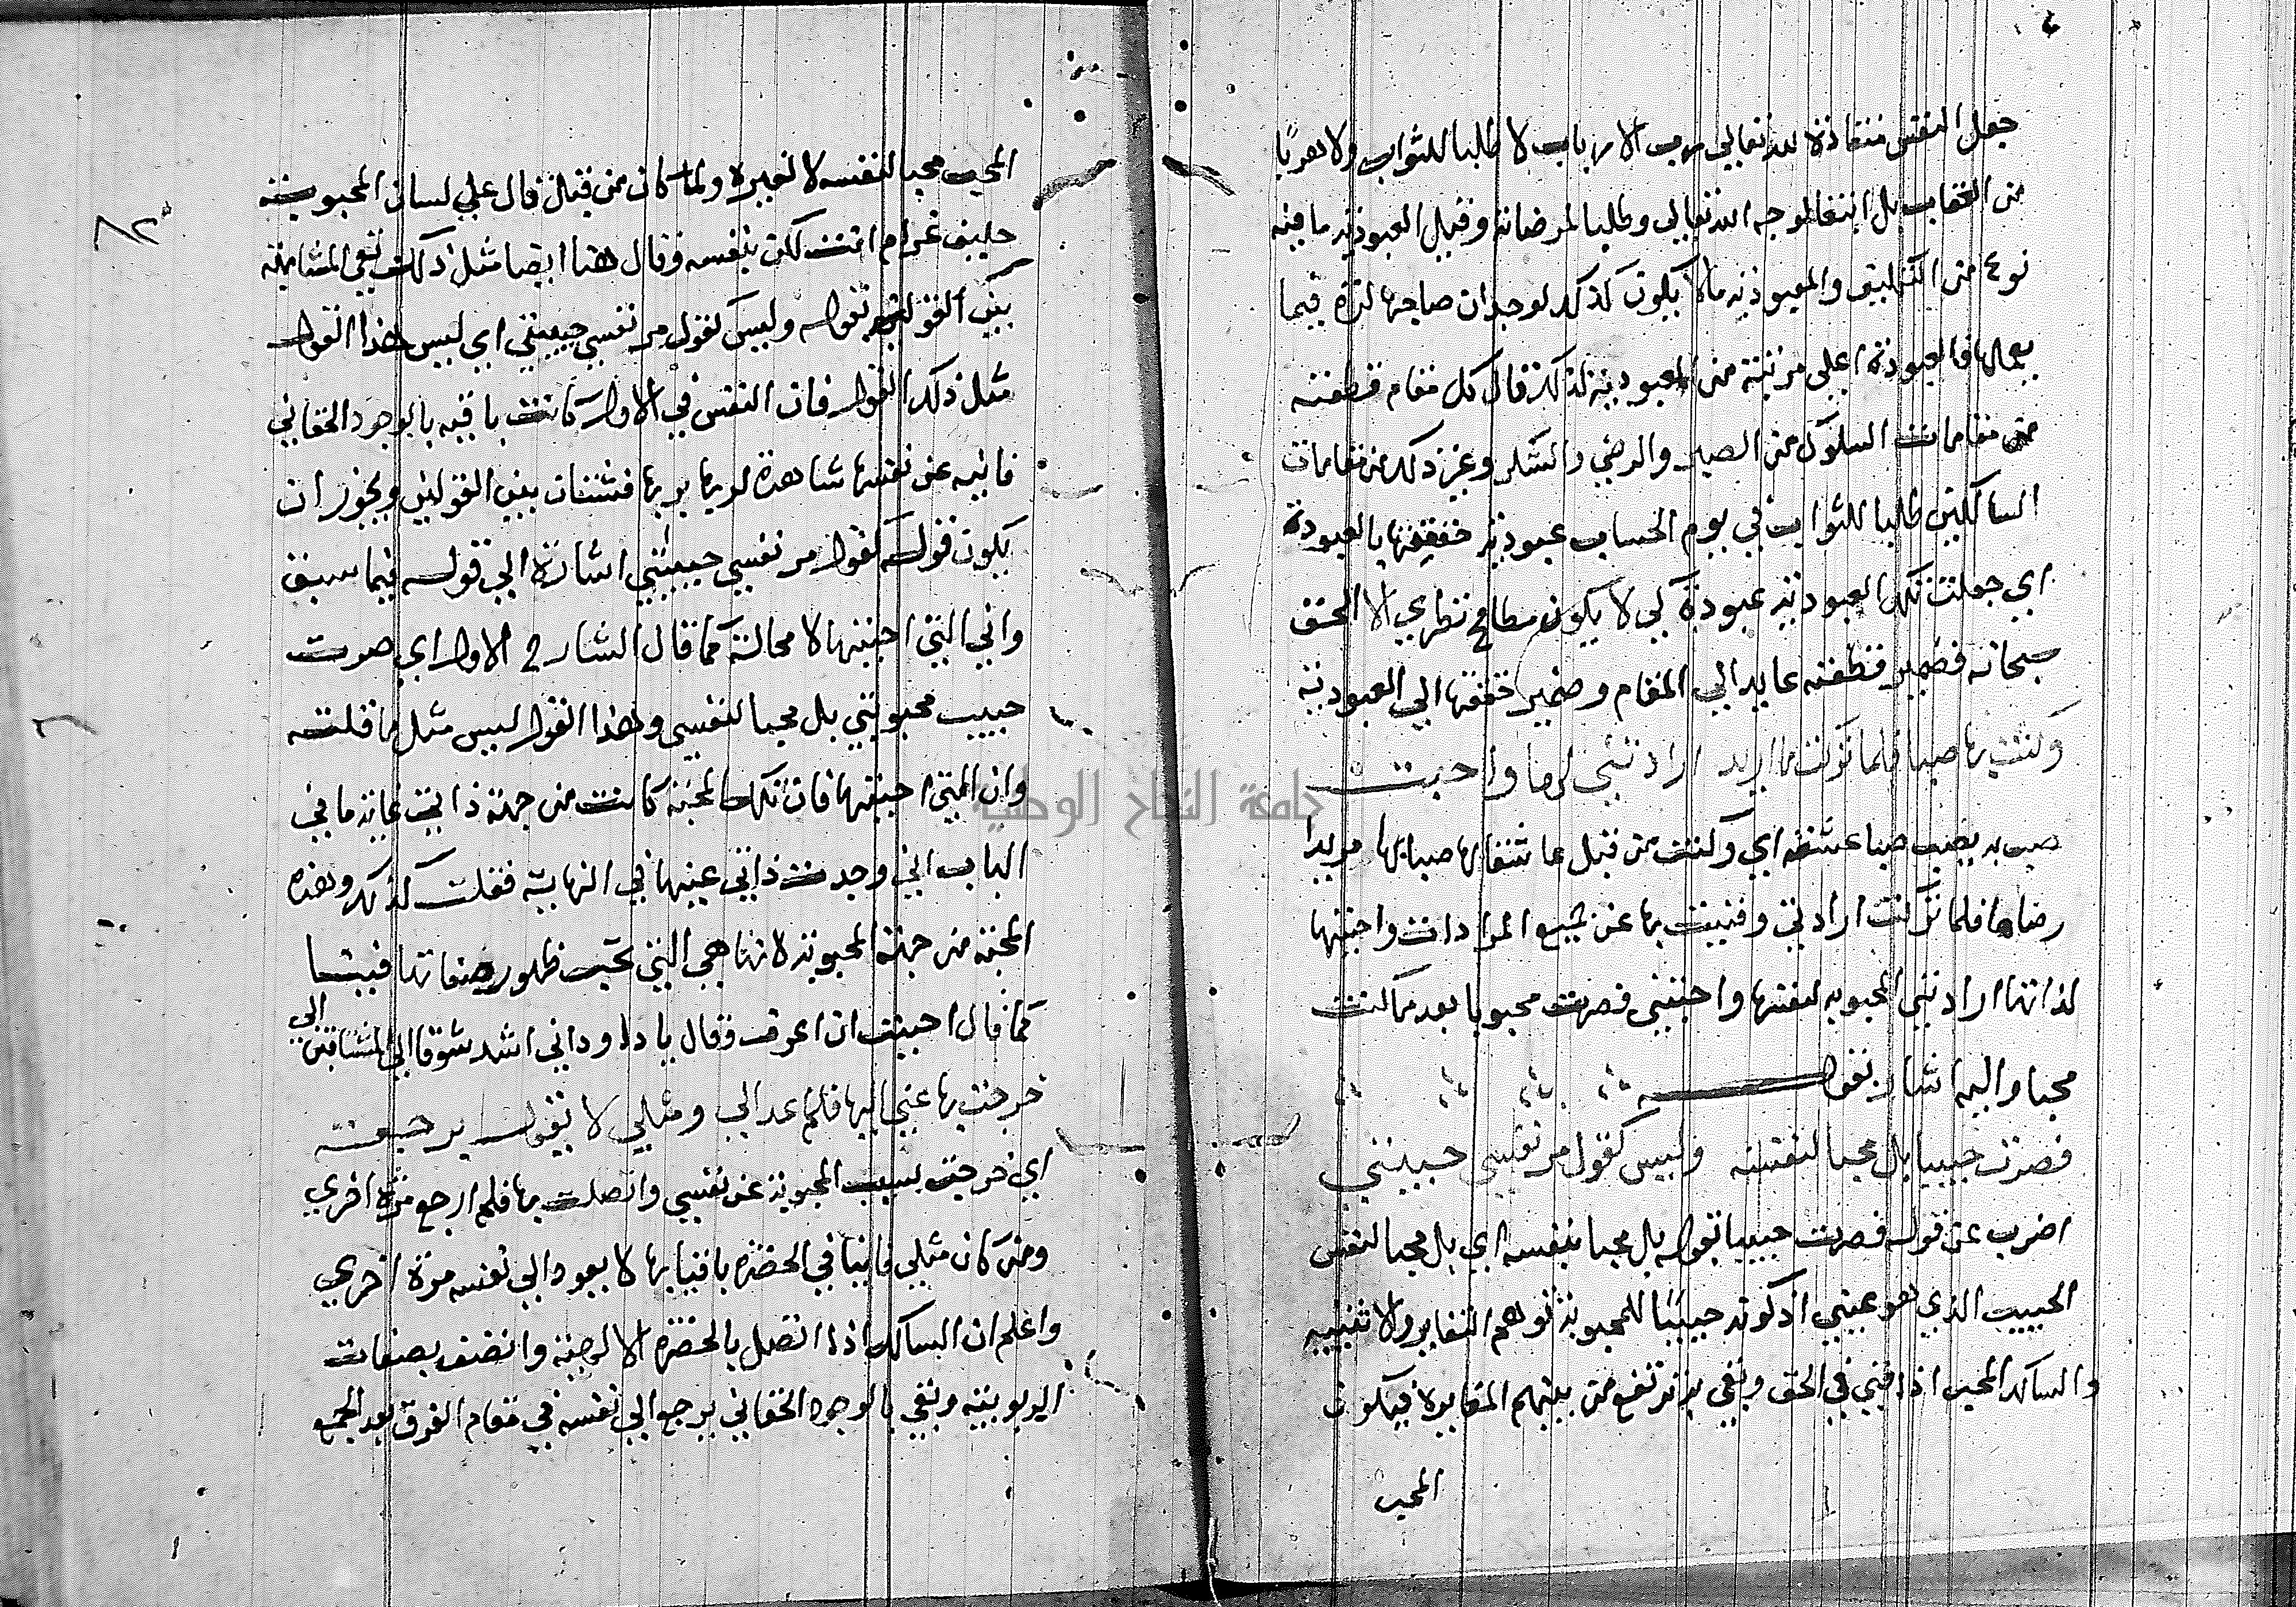 جعل النفس منقادة لله تعالي رب الارباب لا طلبا للثواب ولا هربا
من العقاب بل ابتغا لوجه الله تعالي وطلبا لمرضاته وقيل العبودية ما فيه
نوع من التكليف والعبودية مالا يكون كذلك لوجدان صاحبها لذة فيما
يعملها فالعبودة اعلي مرتبة من العبودية لذلك قال كل مقام قطعته
من مقامات السلوك من الصبر والرضي والشكر وغير ذلك من مقامات
السالكين طلبا للثواب في يوم الحساب عبودية حققتها بالعبودة
اي جعلت تلك العبودية عبودة كي لا يكون مطامح نظري الا الحق
سبحانه فضمير قطعته عايد الي المقام وضمير حققتها الي العبودية
وكنت بها صبا فلما تركت ما اريد ارادتني لها واحبت
صب به يصب صبا عشقه اي وكنت من قبل عاشقا لها صبا بها مريدا
رضاها فلما تركت ارادتي وفنيت بها عن جميع المرادات واحببتها
لذاتها ارادتني المحبوبه لنفسها واحبتني فصرت محبوبا بعد ما كنت
محبا واليه اشار بقوله
فصرت حبيبا بل محبا لنفسه وليس كقول مر نفسي حبيبتي
اضرب عن قوله فصرت حبيبا بقوله بل محبا لنفسه اي بل محبا لنفس
الحبيب الذي هو عيني اذ كونه حبيبا للمحبوبة توهم التغاير والاثنينيه
والسالك المحب اذا فني في الحق وبقي به ترتفع من بينهم المغايرة فيكون
المحب
المحب محبا لنفسه لا لغيره ولما كان من قبل قال علي لسان المحبوبية
حليف غرام انت لكن بنفسه وقال هنا ايضا مثل ذلك نفي المشابهة
بين القولين بقوله وليس كقول مر نفسي حبيبتي اي ليس هذا القول
مثل ذلك القول فان النفس في الاول كانت باقيه بالوجود الحقاني
فانيه عن نفسها شاهدة لربها بربها فشتان بين القولين ويجوز ان
يكون قوله كقول مر نفسي حبيبتي اشارة الي قوله فيما سبق
واني التي احببتها لا محالة كما قال الشارح الاول اي صرت
حبيب محبوبتي بل محبا لنفسي وهذا القول ليس مثل ما قلت
وان التي احببتها فان تلك المحبة كانت من جهة ذاتي غاية ما في
الباب اني وجدت ذاتي عينها في النهاية فقلت كذلك وهذه
المحبة من جهة المحبوبة لانها هي التي تحب ظهور صفاتها فينا
كما قال احببت ان اعرف وقال يا داود اني اشد شوقا الي المشتاقين الي
خرجت بها عني اليها فلم اعد الي ومثلي لا يقول برجعة
اي خرجت بسبب المحبوبة عن نفسي واتصلت بها فلم ارجع مرة اخري
ومن كان مثلي فانيا في الحضرة باقيا بها لا يعود الي نفسه مرة اخري
واعلم ان السالك اذا اتصل بالحضرة الالهية واتصف بصفات
الربوبية وبقي بالوجود الحقاني يرجع الي نفسه في مقام الفرق بعد الجمع
جامعة النجاح الوطنية